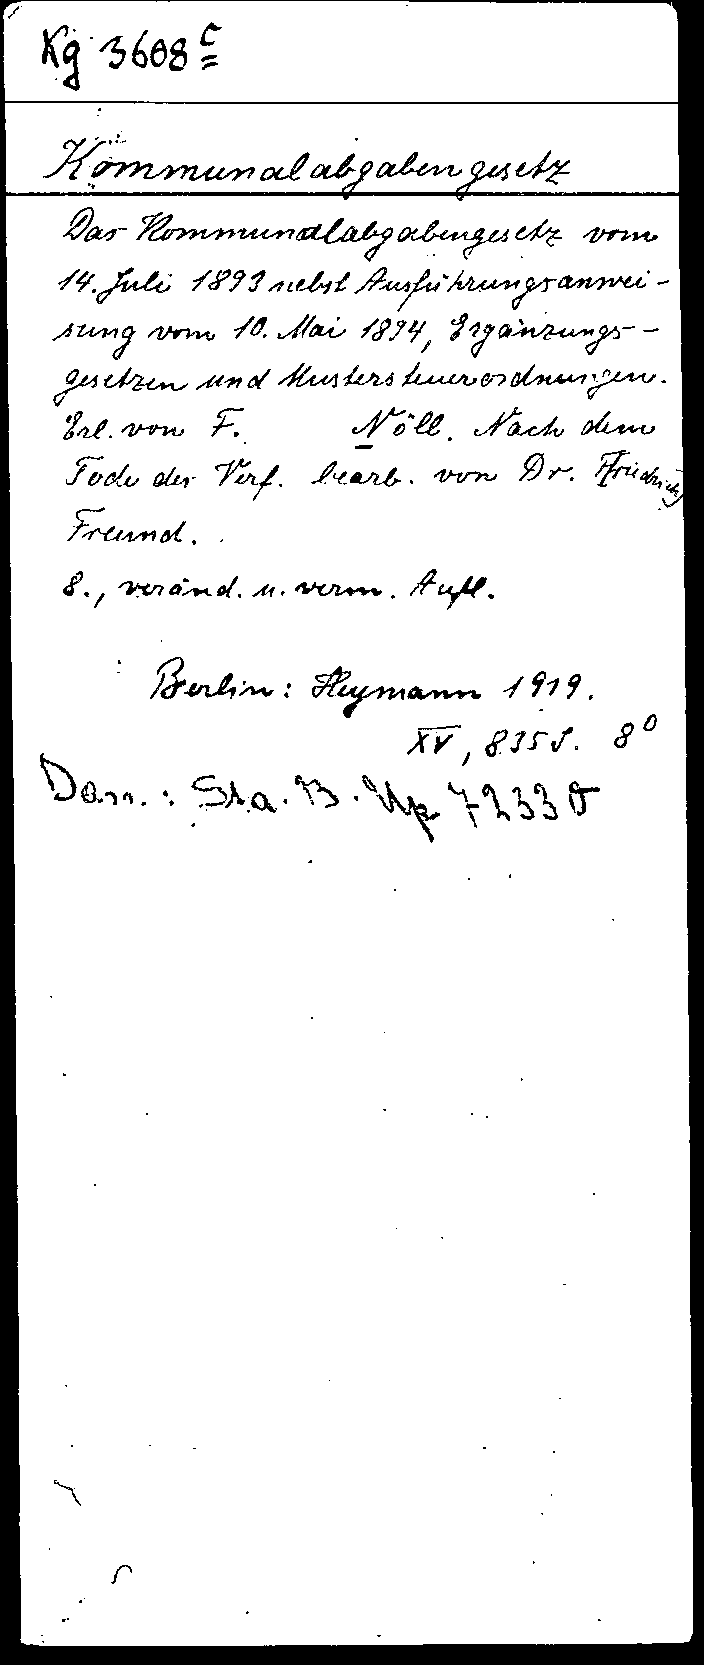 Kg 3608 c
Kommunalabgabengesetz
Das Kommunalabgabengesetz vom
14. Juli 1893 nebst Ausführungsanwei-
sung vom 10. Mai 1894, Ergänzungs-
gesetzen und Mustersteuerordnungen.
Erl. von F. Nöll. Nach dem
Tode des Verf. bearb. von Dr. Friedrich
Freund.
8., veränd. u. verm. Aufl.
Berlin: Heymann 1919.
XV, 835 S. 8°
Dan.: Sta. B. Up 7233